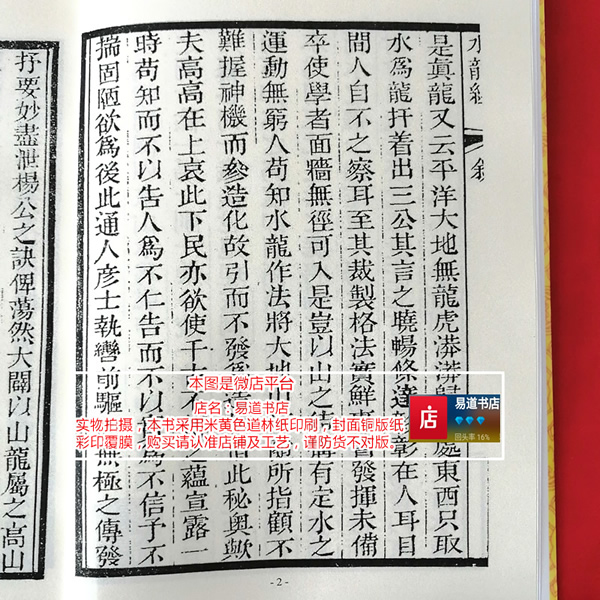 水龍經 敘
是眞龍又云平洋大地無龍虎漭漭歸處東西只取
水爲龍扞着出三公其言之曉暢條達彰在人耳目
間人自不之察耳至其裁製格法實鮮發揮未備
卒使學者面牆無徑可入是豈以山之有定水之
運動無窮人苟知水龍作法將大地所指顧不
難握神機而參造化故引而不發造此秘奧歟
夫高高在上哀此下民亦欲使千之蘊宣露一
時苟知而不以告人爲不仁告而不以爲不信予不
揣固陋欲爲後此通人彥士執轡前驅無極之傳發
抒要妙盡泄楊公之訣俾蕩然大闢以山龍屬之高山
本图是微店平台
店名：易道书店
实物拍摄，本书采用米黄色道林纸印刷，封面铜版纸
彩印覆膜，购买请认准店铺及工艺，谨防货不对版
店
易道书店
回头率 16%
-2-